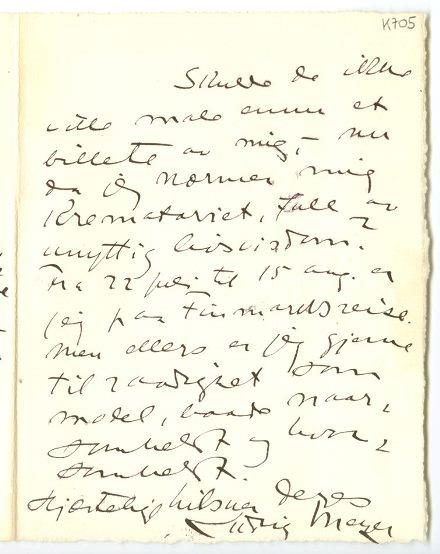 K705
Skulle de ikke
ville male ennu et
billete av mig, – nu
da jeg nærmer mig
Krematoriet, full av
unyttig livsvisdom?
Fra 22 juli til 15 aug. er
jeg paa Finmarksreise.
Men ellers er jeg gjerne
til raadighet som
model, baade naar-
somhelst og hvor-
somhelst.
Hjertelig hilsner Deres
Ludvig Meyer